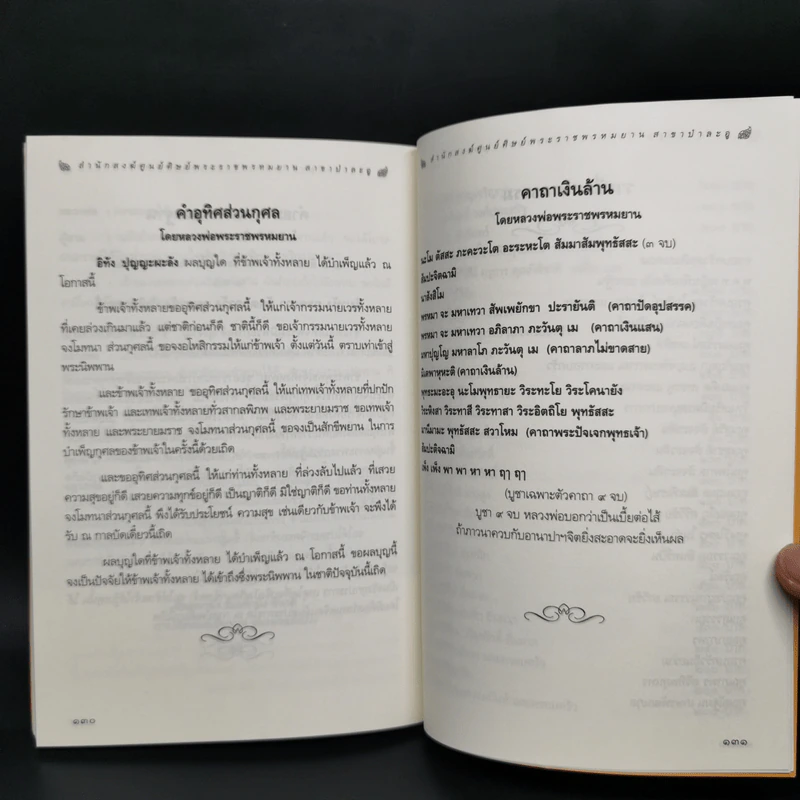 สำนักสงฆ์ศูนย์ศิษย์พระราชพรหมยาน สาขาป่าละอู
คำอุทิศส่วนกุศล
โดยหลวงพ่อพระราชพรหมยาน
อิทัง ปุญญะผะลัง ผลบุญใด ที่ข้าพเจ้าทั้งหลาย ได้บำเพ็ญแล้ว ณ
โอกาสนี้
ข้าพเจ้าทั้งหลายขออุทิศส่วนกุศลนี้ ให้แก่เจ้ากรรมนายเวรทั้งหลาย
ที่เคยล่วงเกินมาแล้ว แต่ชาติก่อนก็ดี ชาตินี้ก็ดี ขอเจ้ากรรมนายเวรทั้งหลาย
จงโมทนา ส่วนกุศลนี้ ขอจงอโหสิกรรมให้แก่ข้าพเจ้า ตั้งแต่วันนี้ ตราบเท่าเข้าสู่
พระนิพพาน
และข้าพเจ้าทั้งหลาย ขออุทิศส่วนกุศลนี้ ให้แก่เทพเจ้าทั้งหลายที่ปกปัก
รักษาข้าพเจ้า และเทพเจ้าทั้งหลายทั่วสากลพิภพ และพระยายมราช ขอเทพเจ้า
ทั้งหลาย และพระยายมราช จงโมทนาส่วนกุศลนี้ ขอจงเป็นสักขีพยาน ในการ
บำเพ็ญกุศลของข้าพเจ้าในครั้งนี้ด้วยเถิด
และขออุทิศส่วนกุศลนี้ ให้แก่ท่านทั้งหลาย ที่ล่วงลับไปแล้ว ที่เสวย
ความสุขอยู่ก็ดี เสวยความทุกข์อยู่ก็ดี เป็นญาติก็ดี มิใช่ญาติก็ดี ขอท่านทั้งหลาย
จงโมทนาส่วนกุศลนี้ พึงได้รับประโยชน์ ความสุข เช่นเดียวกับข้าพเจ้า จะพึงได้
รับ ณ กาลบัดเดี๋ยวนี้เถิด
ผลบุญใดที่ข้าพเจ้าทั้งหลาย ได้บำเพ็ญแล้ว ณ โอกาสนี้ ขอผลบุญนี้
จงเป็นปัจจัยให้ข้าพเจ้าทั้งหลาย ได้เข้าถึงซึ่งพระนิพพาน ในชาติปัจจุบันนี้เถิด
๑๓๐
สำนักสงฆ์ศูนย์ศิษย์พระราชพรหมยาน สาขาป่าละอู
คาถาเงินล้าน
โดยหลวงพ่อพระราชพรหมยาน
นะโม ตัสสะ ภะคะวะโต อะระหะโต สัมมาสัมพุทธัสสะ (๓ จบ)
สัมปะจิตฉามิ
นาสังสิโม
พรหมา จะ มหาเทวา สัพเพยักขา ปะรายันติ (คาถาปัดอุปสรรค)
พรหมา จะ มหาเทวา อภิลาภา ภะวันตุ เม (คาถาเงินแสน)
มหาปุญโญ มหาลาโภ ภะวันตุ เม (คาถาลาภไม่ขาดสาย)
มิเตพาหุหะติ (คาถาเงินล้าน)
พุทธะมะอะอุ นะโมพุทธายะ วิระทะโย วิระโคนายัง
วิระหิงสา วิระทาสี วิระทาสา วิระอิตถิโย พุทธัสสะ
มานีมามะ พุทธัสสะ สวาโหม (คาถาพระปัจเจกพุทธเจ้า)
สัมปะติจฉามิ
เพ็ง เพ็ง พา พา หา หา ฤา ฤา
(บูชาเฉพาะตัวคาถา ๙ จบ)
บูชา ๙ จบ หลวงพ่อบอกว่าเป็นเบี้ยต่อไส้
ถ้าภาวนาควบกับอานาปาฯจิตยิ่งสะอาดจะยิ่งเห็นผล
๑๓๑